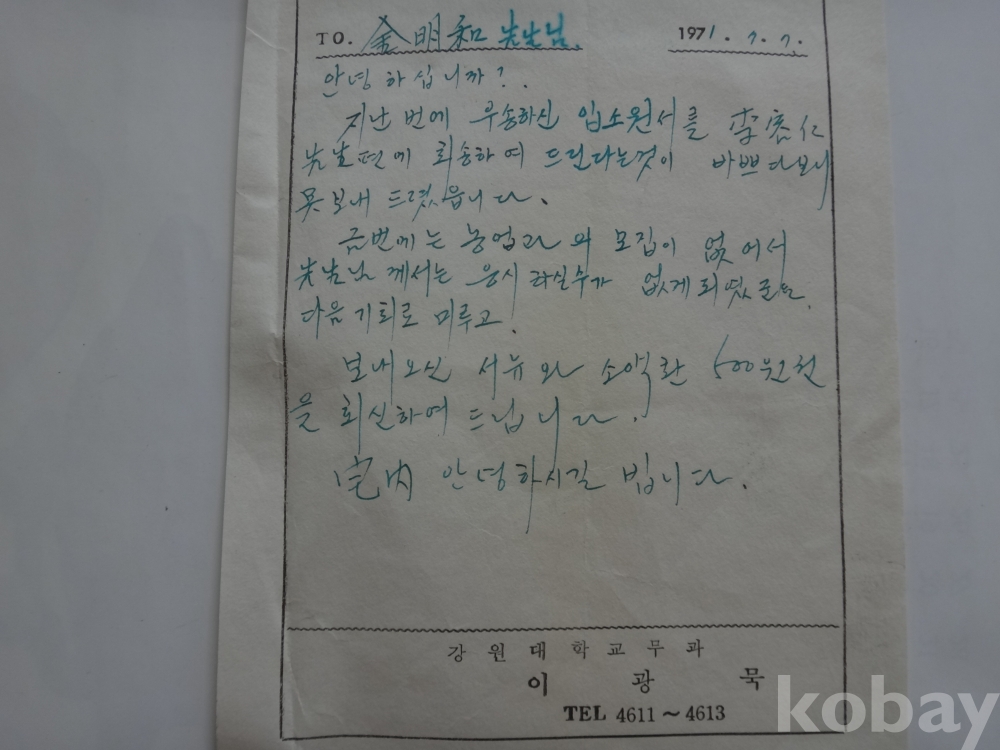 TO. 金明和 先生님. 1971. 7. 7.
안녕하십니까?.
지난 번에 우송하신 입소원서를 李 仁
先生편에 회송하여 드린다는것이 바쁘다보니
못 보내 드렸읍니다.
금번에는 농업과 의 모집이 없어서
先生님 께서는 응시 하실수가 없게되였군요.
다음 기회로 미루고.
보내오신 서류와 소액환 500원권
을 회신하여 드립니다.
宅內 안녕하시길 빕니다.
강원대학교무과
이광묵
TEL 4611~4613
kobay